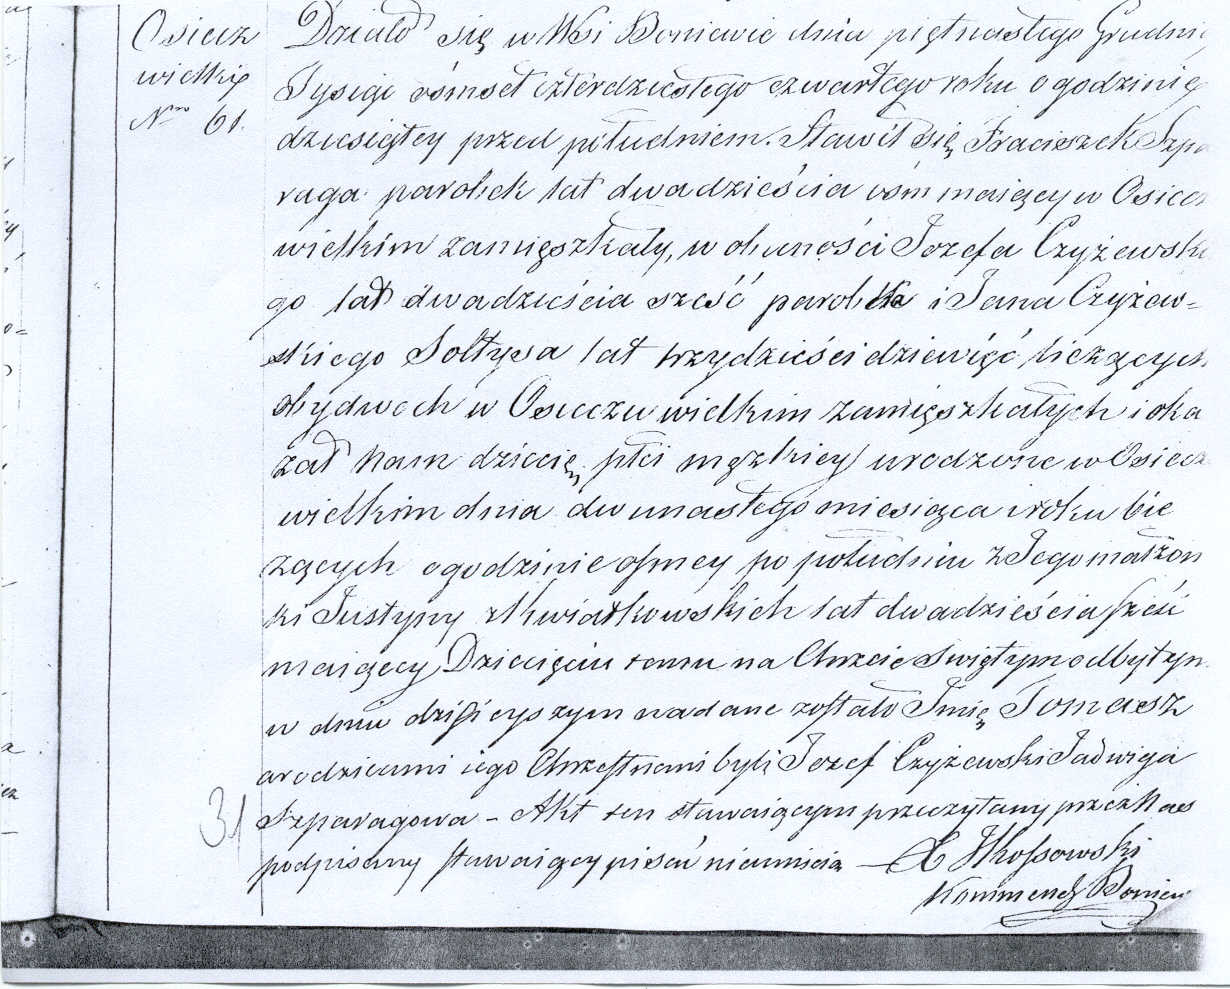 Osiecz
wielkie
Nro 61.
Działo się w Wsi Boniewie dnia piętnastego Grudni
Tysiąc ośmset czterdziestego czwartego roku o godzinie
dziesiątey przed południem. Stawił się Franciszek Szpa
raga parobek lat dwadzieścia ośm maiący w Osiecz
wielkim zamięszkały, w obecności Jozefa Czyżewski
go lat dwadzieścia sześć parobka i Jana Czyżew-
skiego Sołtysa lat trzydzieści dziewięć liczących
obydwoch w Osieczu wielkim zamięszkałych i oka
zał nam dziecię płci męzkiey urodzone w Osiecz
wielkim dnia dwunastego miesiąca i roku bie
zących o godzinie osmey po południu z Jego małżon
ki Justyny z Kwiatkowskich lat dwadzieścia sześć
maiącey Dziecięciu temu na Chrzcie Swiętym odbytym
w dniu dzisieyszym nadane zostało Imię Tomasz
a rodzicami iego Chrzestnemi byli Jozef Czyżewski Jadwiga
Szparagowa - Akt ten stawaiącym przeczytany przez Nas
podpisany stawaiący pisać nieumieią — X
Kommend. Boniew
31